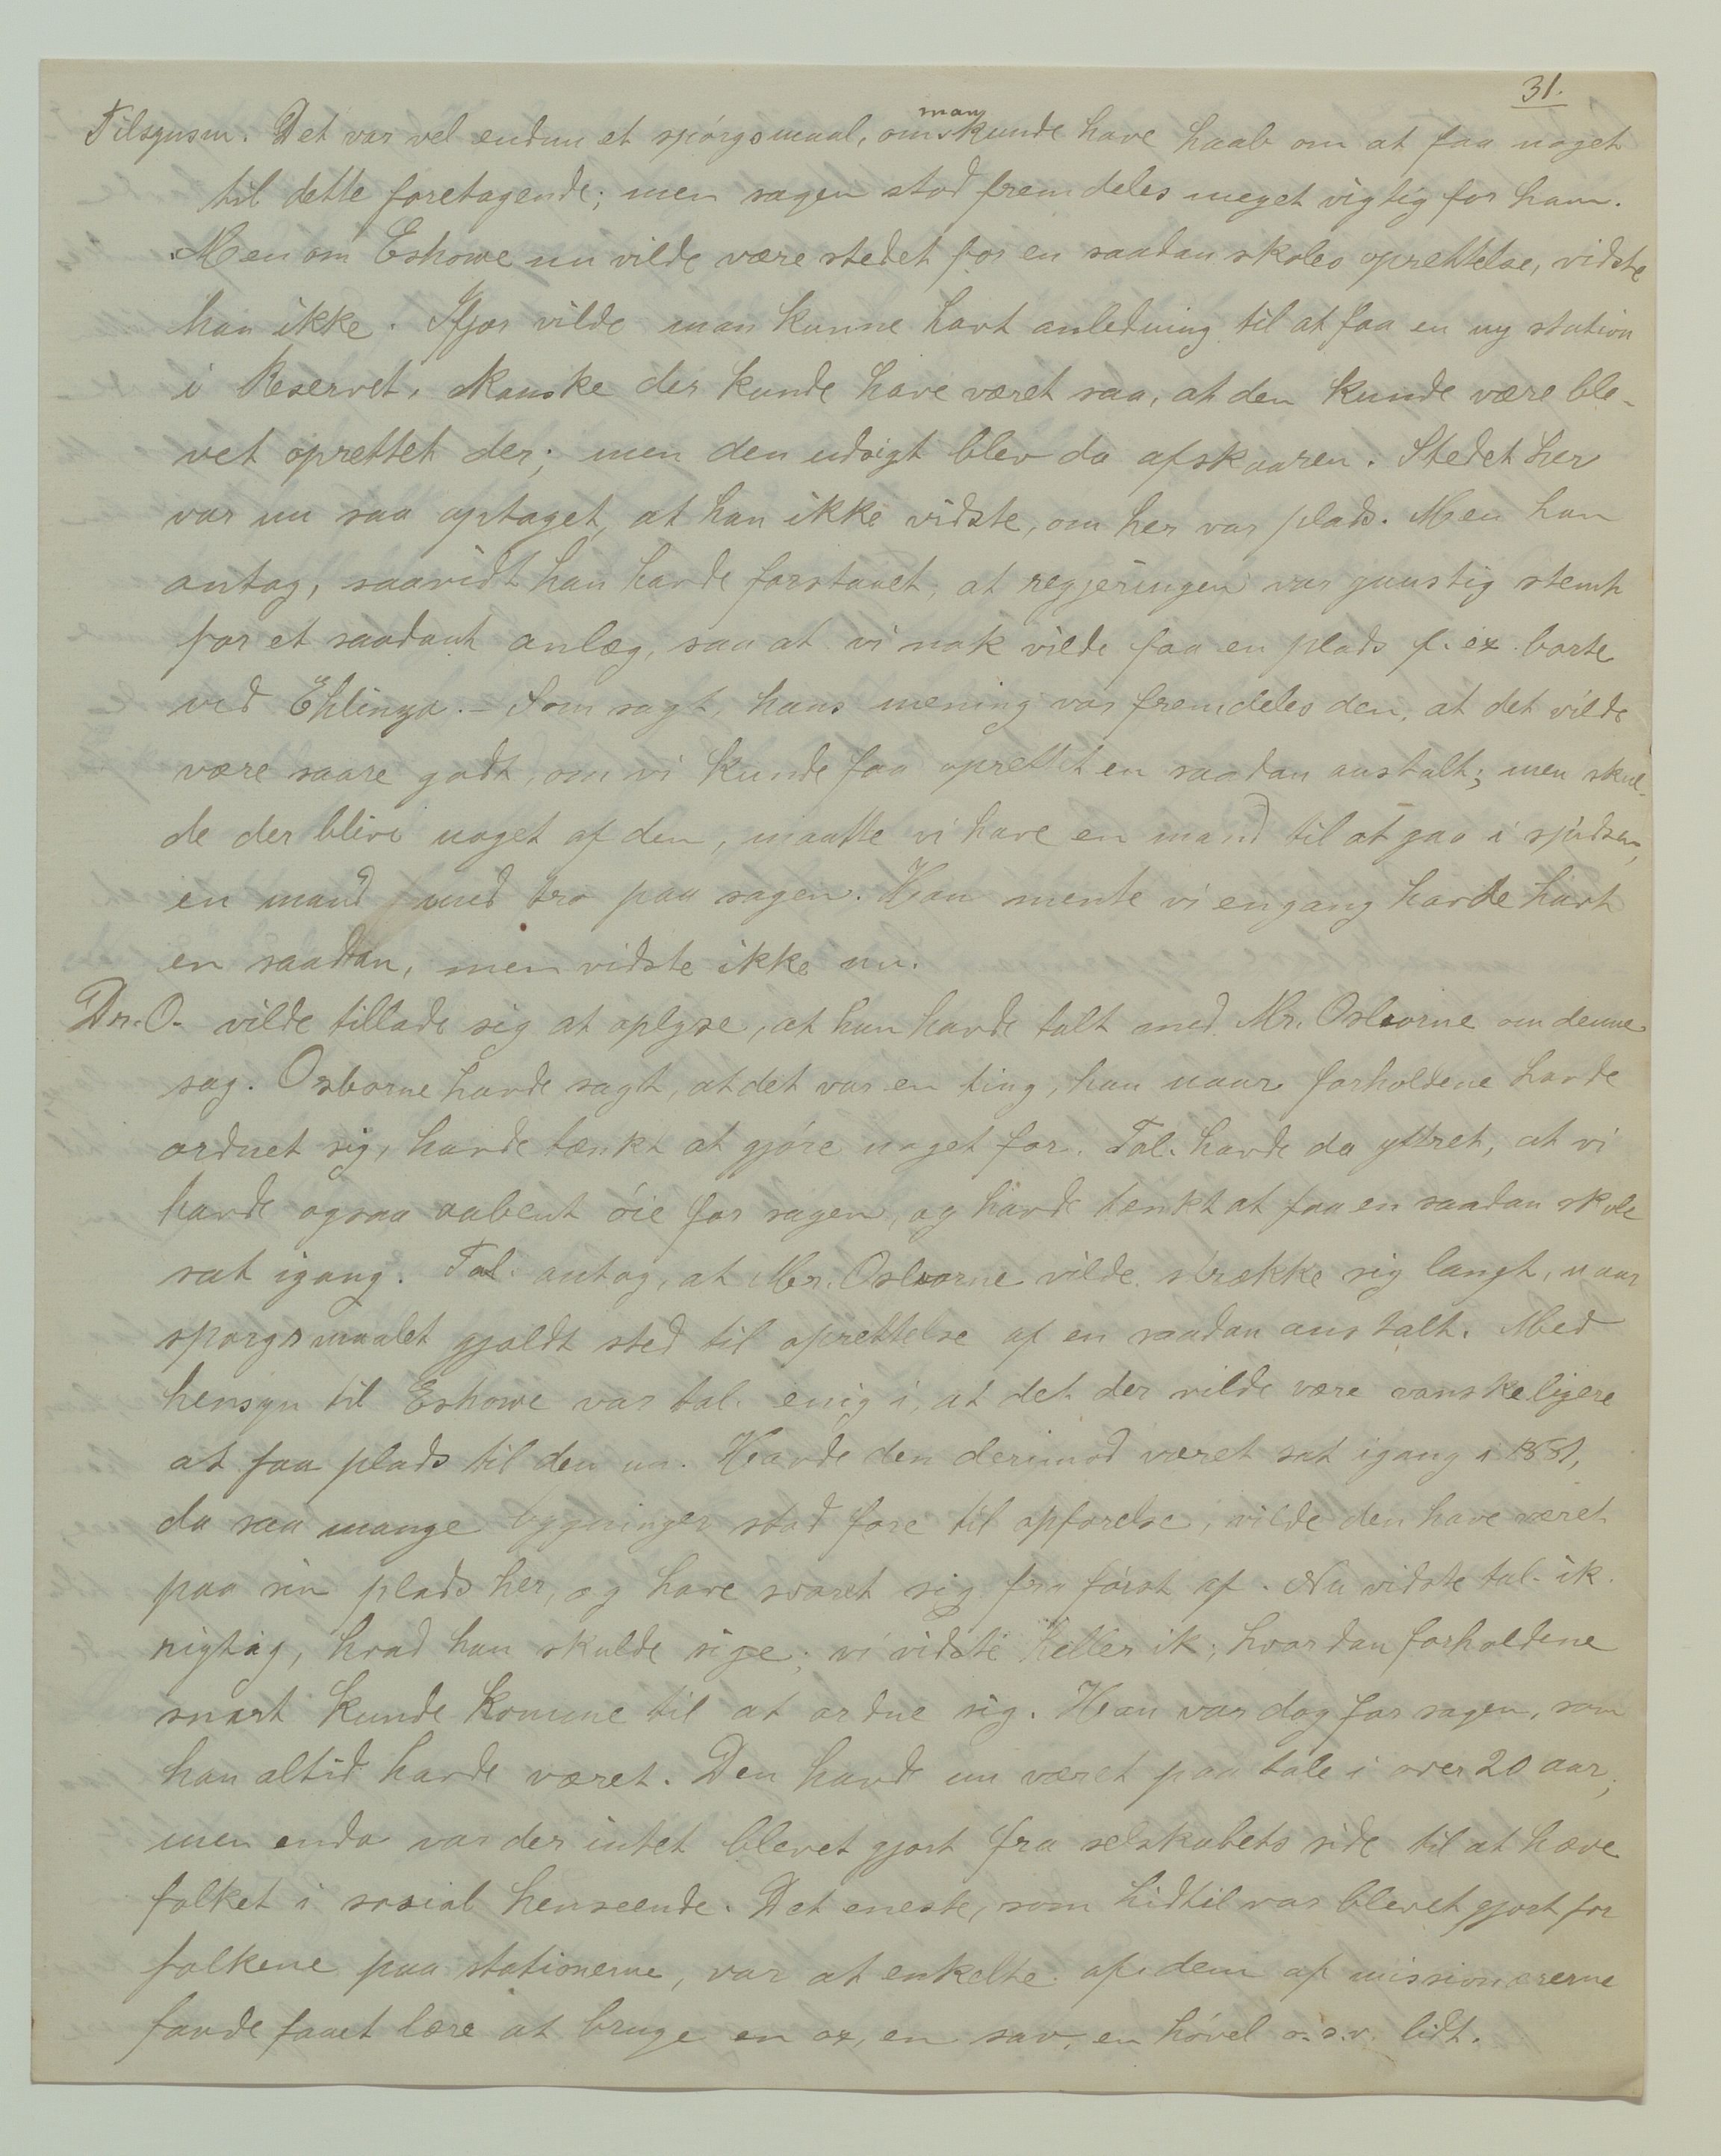 31.
Tilsynsm. Det var vel endnu et spørgsmaal, om man kunde have haab om at faa noget
til dette foretagende; men sagen stod fremdeles meget vigtig for ham.
Men om Eshowe nu vilde være stedet for en saadan skoles oprettelse, vidste
han ikke. Ifjor vilde man kunne havt anledning til at faa en ny station
i Reservet. Kanske der kunde have været saa, at den kunde være ble-
vet oprettet der; men den udsigt blev da afskaaren. Stedet her
var nu saa optaget, at han ikke vidste, om her var plads. Men han
antog, saavidt han havde forstaaet, at regjeringen var gunstig stemt
for et saadant anlæg, saa at vi nok vilde faa en plads f. ex. borte
ved Ehlinza. – Som sagt, hans mening var fremdeles den, at det vilde
være saare godt, om vi kunde faa oprettet en saadan anstalt; men skul-
de der blive noget af den, maatte vi have en mand til at gaa i spidsen,
en mand med tro paa sagen. Han mente vi engang havde havt
en saadan, men vidste ikke nu.
Dr. O. vilde tillade sig at oplyse, at han havde talt med Mr. Osborne om denne
sag. Osborne havde sagt, at det var en ting, han naar forholdene havde
ordnet sig, havde tænkt at gjøre noget for. Tal. havde da yttret, at vi
havde ogsaa aabent øie for sagen, og havde tænkt at faa en saadan skole
sat igang. Tal. antog, at Mr. Osborne vilde strække sig langt, naar
spørgsmaalet gjaldt sted til oprettelse af en saadan anstalt. Med
hensyn til Eshowe var tal. enig i, at det der vilde være vanskeligere
at faa plads til den nu. Havde den derimod været sat igang i 1881,
da saa mange bygninger stod fore til opførelse, vilde den have været
paa sin plads her, og have svaret sig fra først af. Nu vidste tal. ik.
rigtig, hvad han skulde sige; vi vidste heller ik. hvordan forholdene
snart kunde komme til at ordne sig. Han var dog for sagen, som
han altid havde været. Den havde nu været paa tale i over 20 aar;
men enda var der intet blevet gjort fra selskabets side til at hæve
folket i social henseende. Det eneste, som hidtil var blevet gjort for
folkene paa stationerne, var at enkelte af dem af missionærerne
havde faaet lære at bruge en ox, en sav, en høvel o.s.v. lidt.